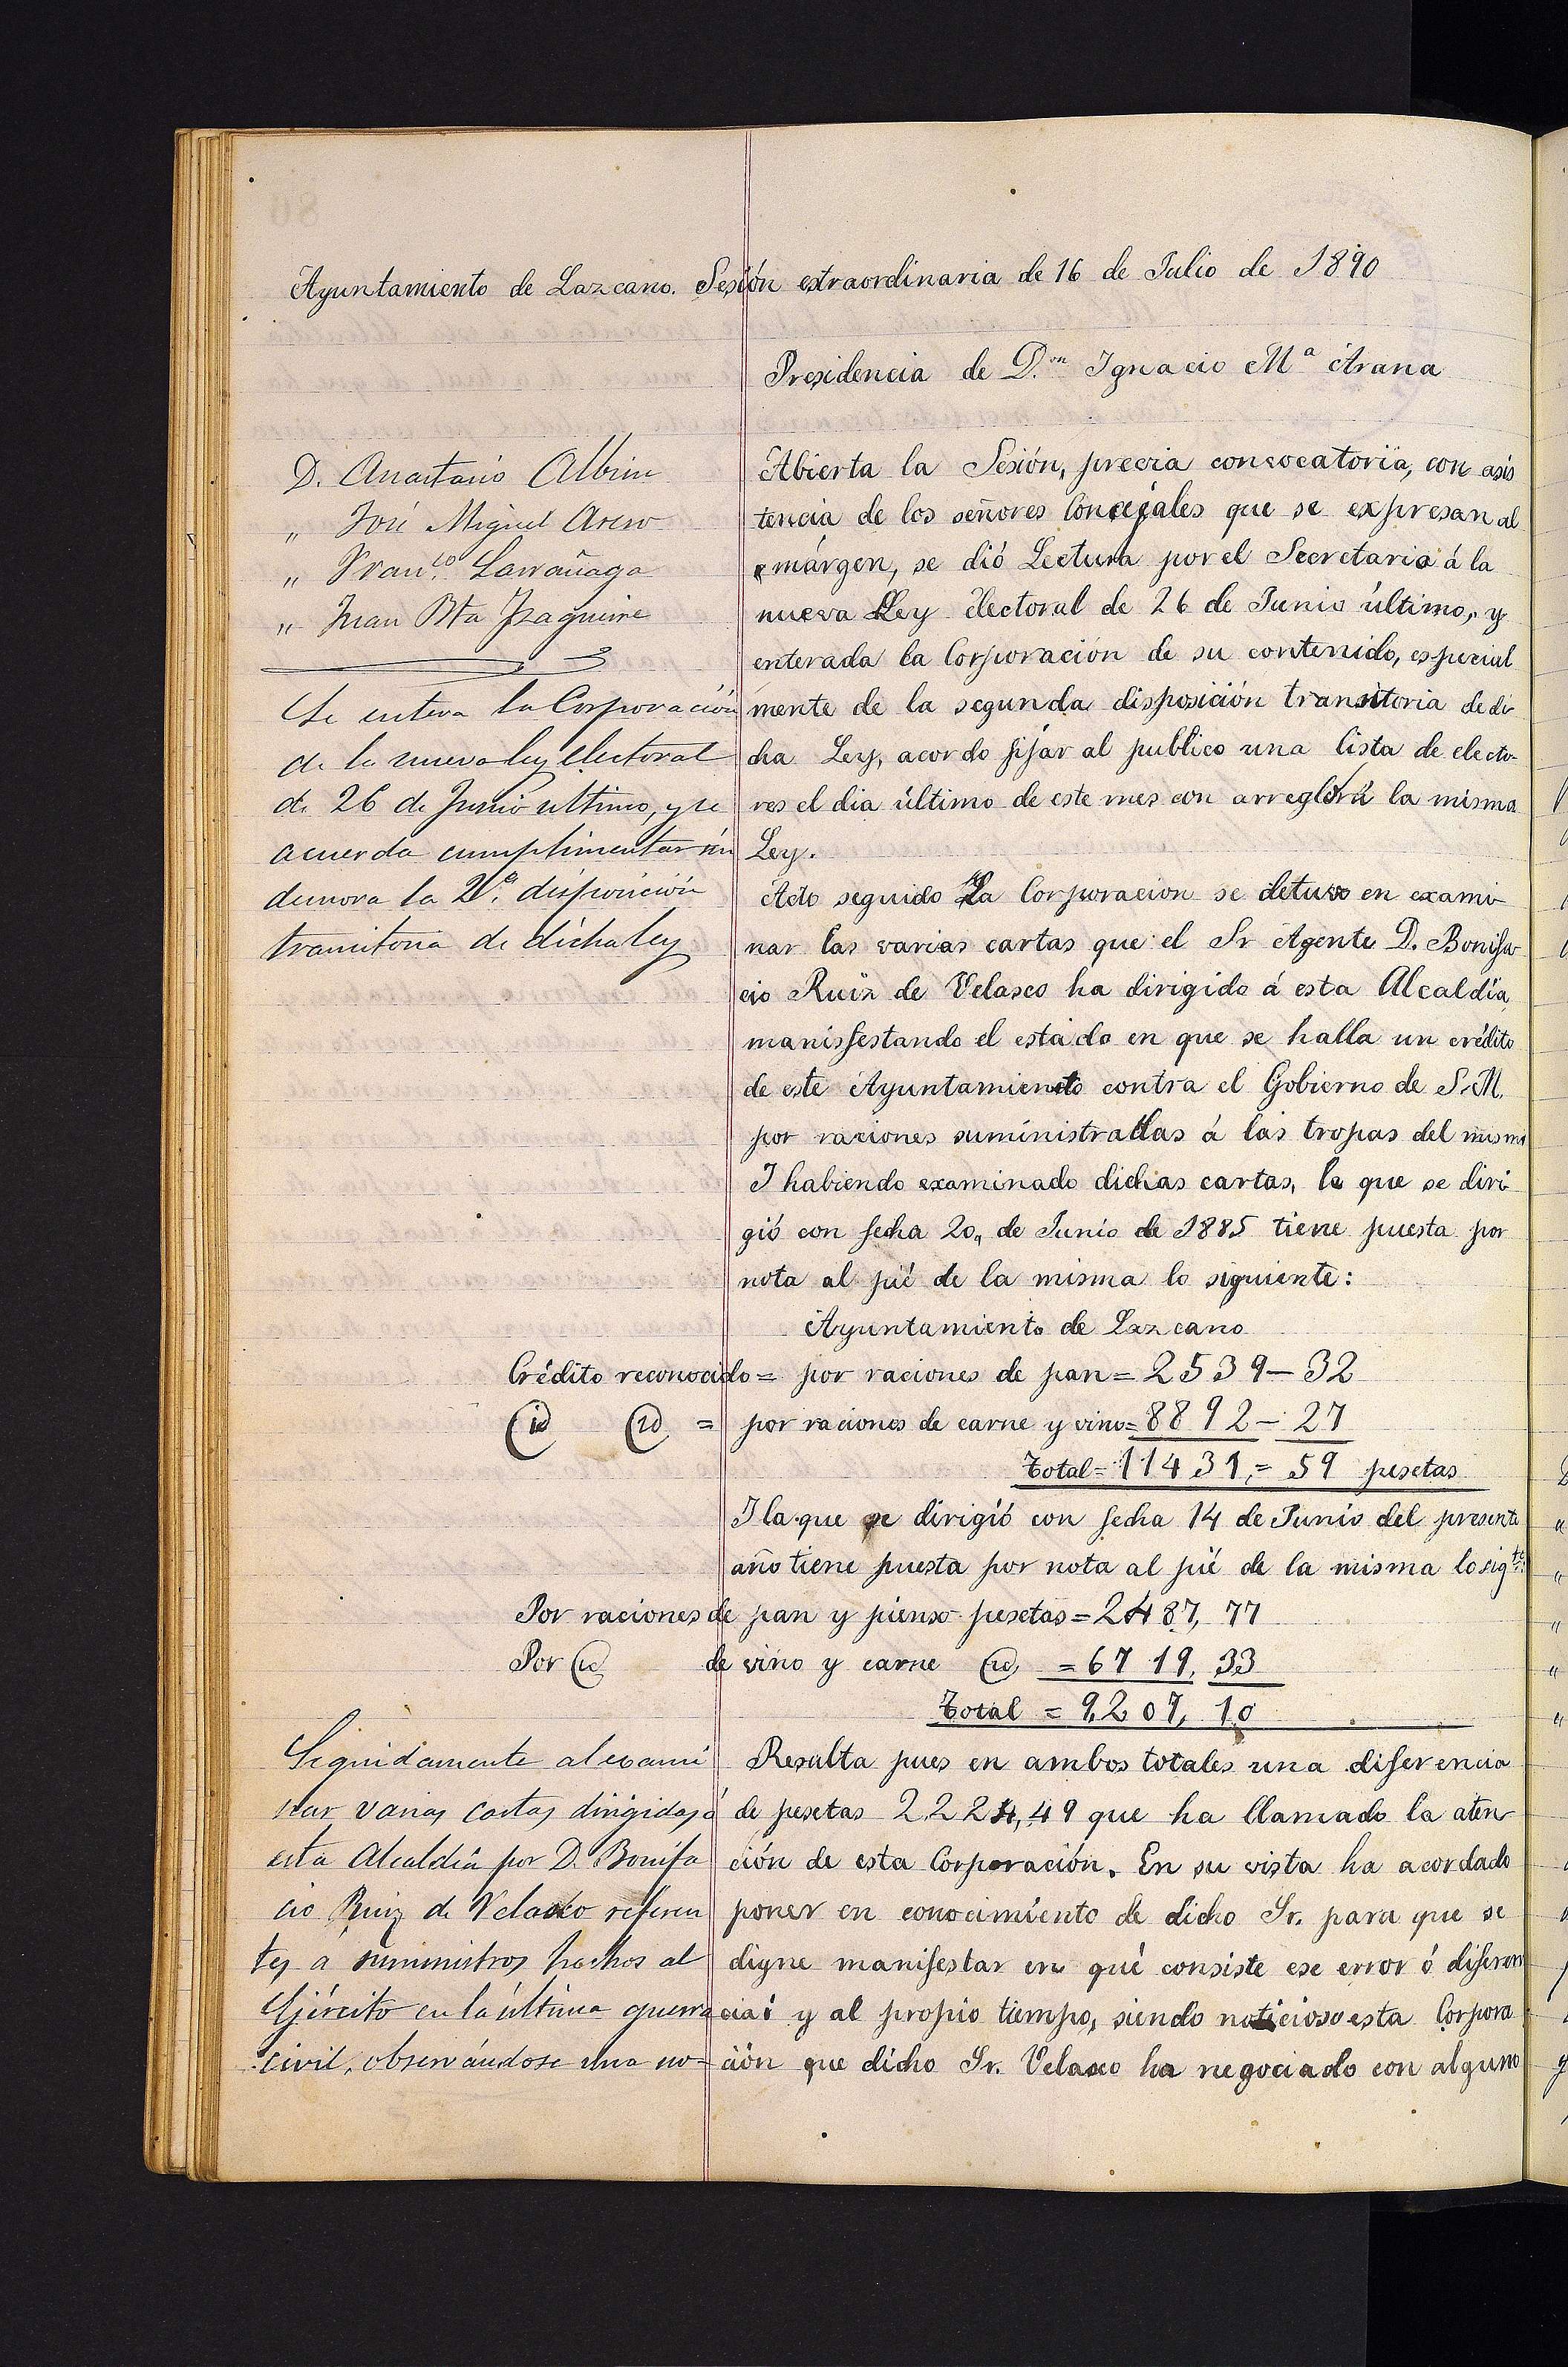 Ayuntamiento de Lazcano. Sesión extraordinaria de 16 de Julio de 1890
Presidencia de D.on Ignacio Mª Arana
D. Anastasio Albisu
" José Miguel
" Fran.co Larrañaga
" Juan Bta Izaguirre
Se entera la Corporación
de la nueva ley electoral
de 26 de Junio ultimo, y se
acuerda cumplimentar sin
demora la 2.ª disposición
transitoria de dicha ley
Abierta la Sesión, previa convocatoria, con asis
tencia de los señores Concejales que se expresan al
márgen, se dió Lectura por el Secretario á la
nueva Ley Electoral de 26 de Junio último, y
enterada la Corporación de su contenido, especial
mente de la segunda disposición transitoria de di
cha Ley, acordo fijar al publico una lista de electo-
res el dia último de este mes con arreglo á la misma
Ley.
Acto seguido la Corporacion se detuvo en exami-
nar las varias cartas que el Sr Agente D. Bonifa-
cio Ruiz de Velasco ha dirigido á esta Alcaldía
manisfestando el estado en que se halla un crédito
de este Ayuntamiento contra el Gobierno de S.M.
por raciones suministradas á las tropas del mismo
I habiendo examinado dichas cartas, la que se diri
gió con fecha 20, de Junio de 1885 tiene puesta por
nota al pié de la misma lo siguiente:
Ayuntamiento de Lazcano
Crédito reconocido = por raciones de pan = 2539-32
id id = por raciones de carne y vino = 8892-27
Total = 11431,= 59 pesetas
I la que se dirigió con fecha 14 de Junio del presente
año tiene puesta por nota al pié de la misma lo sig.te:
Por raciones de pan y pienso pesetas = 2487, 77
Por id de vino y carne id = 6719, 33
Total = 9,207, 10
Seguidamente al exami
nar varias cartas dirigidas á
esta Alcaldía por D. Bonifa
cio Ruiz de Velasco referen
tes a suministros hechos al
Ejército en la última guerra
civil, observándose una no-
Resulta pues en ambos totales una diferencia
de pesetas 2.224,49 que ha llamado la aten-
ción de esta Corporación. En su vista ha acordado
poner en conocimiento de dicho Sr. para que se
digne manifestar en qué consiste ese error ó diferen
cia: y al propio tiempo, siendo noticioso esta Corpora
ción que dicho Sr. Velasco ha negociado con alguno